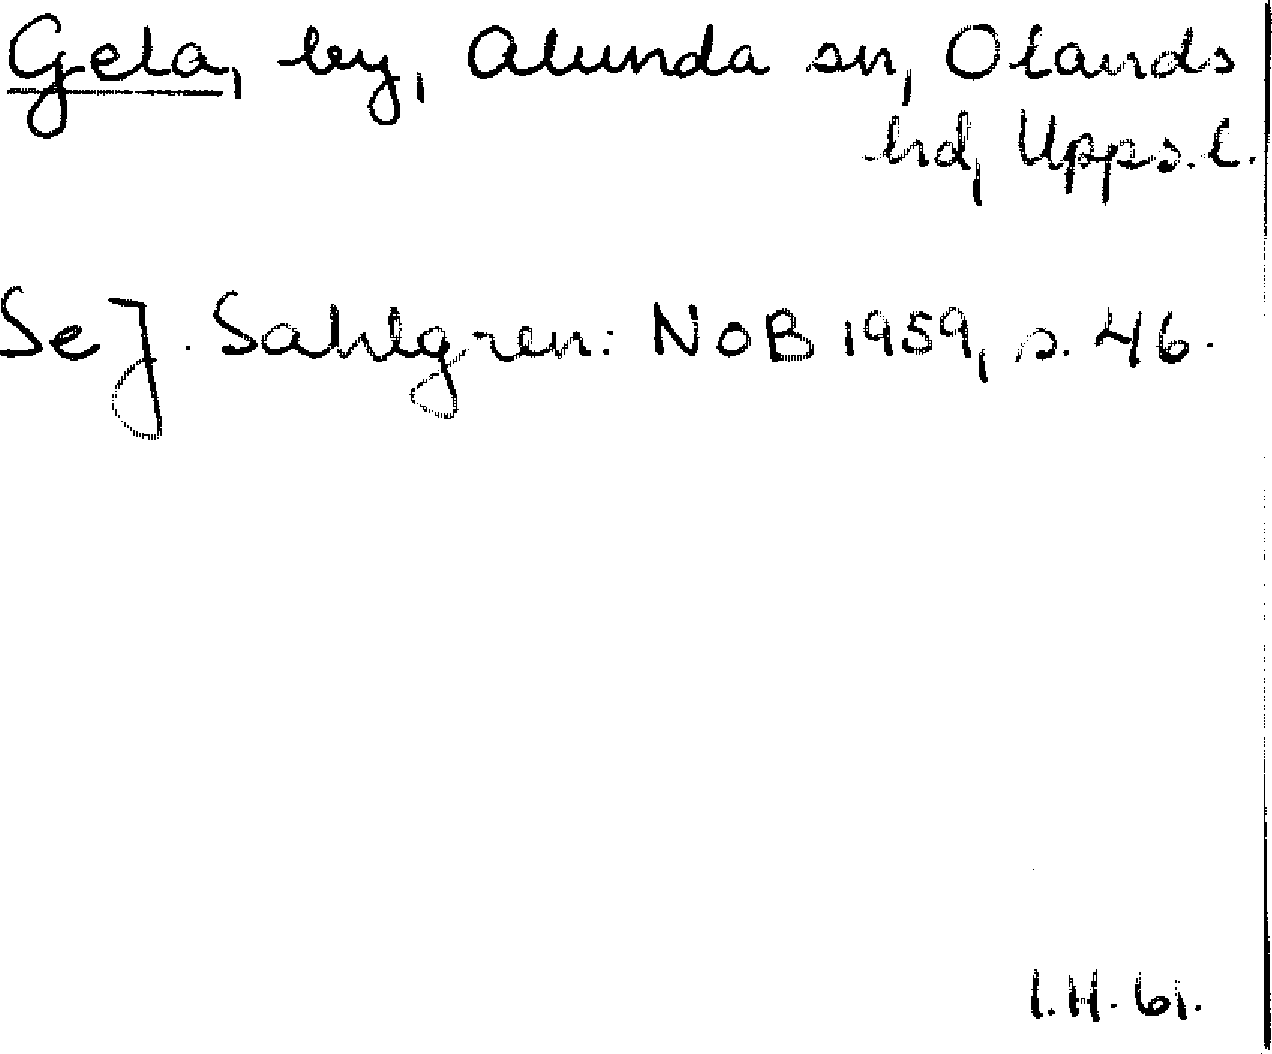 Gela, by, Alunda sn, Olands
hd, Upps. l.
Se J. Sahlgren: NoB 1959, s. 46.
I.H. 61.